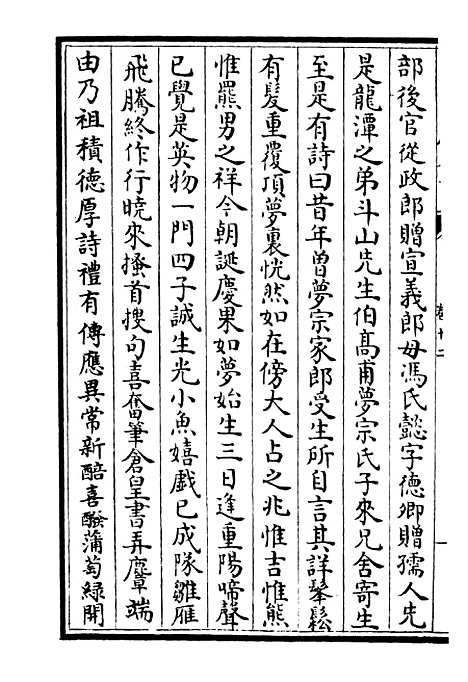 部後官從政郎贈宣義郎母馮氏懿字德卿贈孺人先
是龍潭之弟斗山先生伯高甫夢宗氏子來兄舍寄生
至是有詩曰昔年曽夢宗家郎受生所自言其詳髼鬆
有髪重覆頂夢裏恍然如在傍大人占之兆惟吉惟熊
惟羆男之祥今朝誕慶果如夢始生三日逢重陽啼聲
已覺是英物一門四子誠生光小魚嬉戯已成隊雛雁
飛騰終作行曉來搔首搜句喜奮筆倉皇書弄麞端
由乃祖積德厚詩禮有傳應異常新醅喜醱蒲萄緑開
卷十二